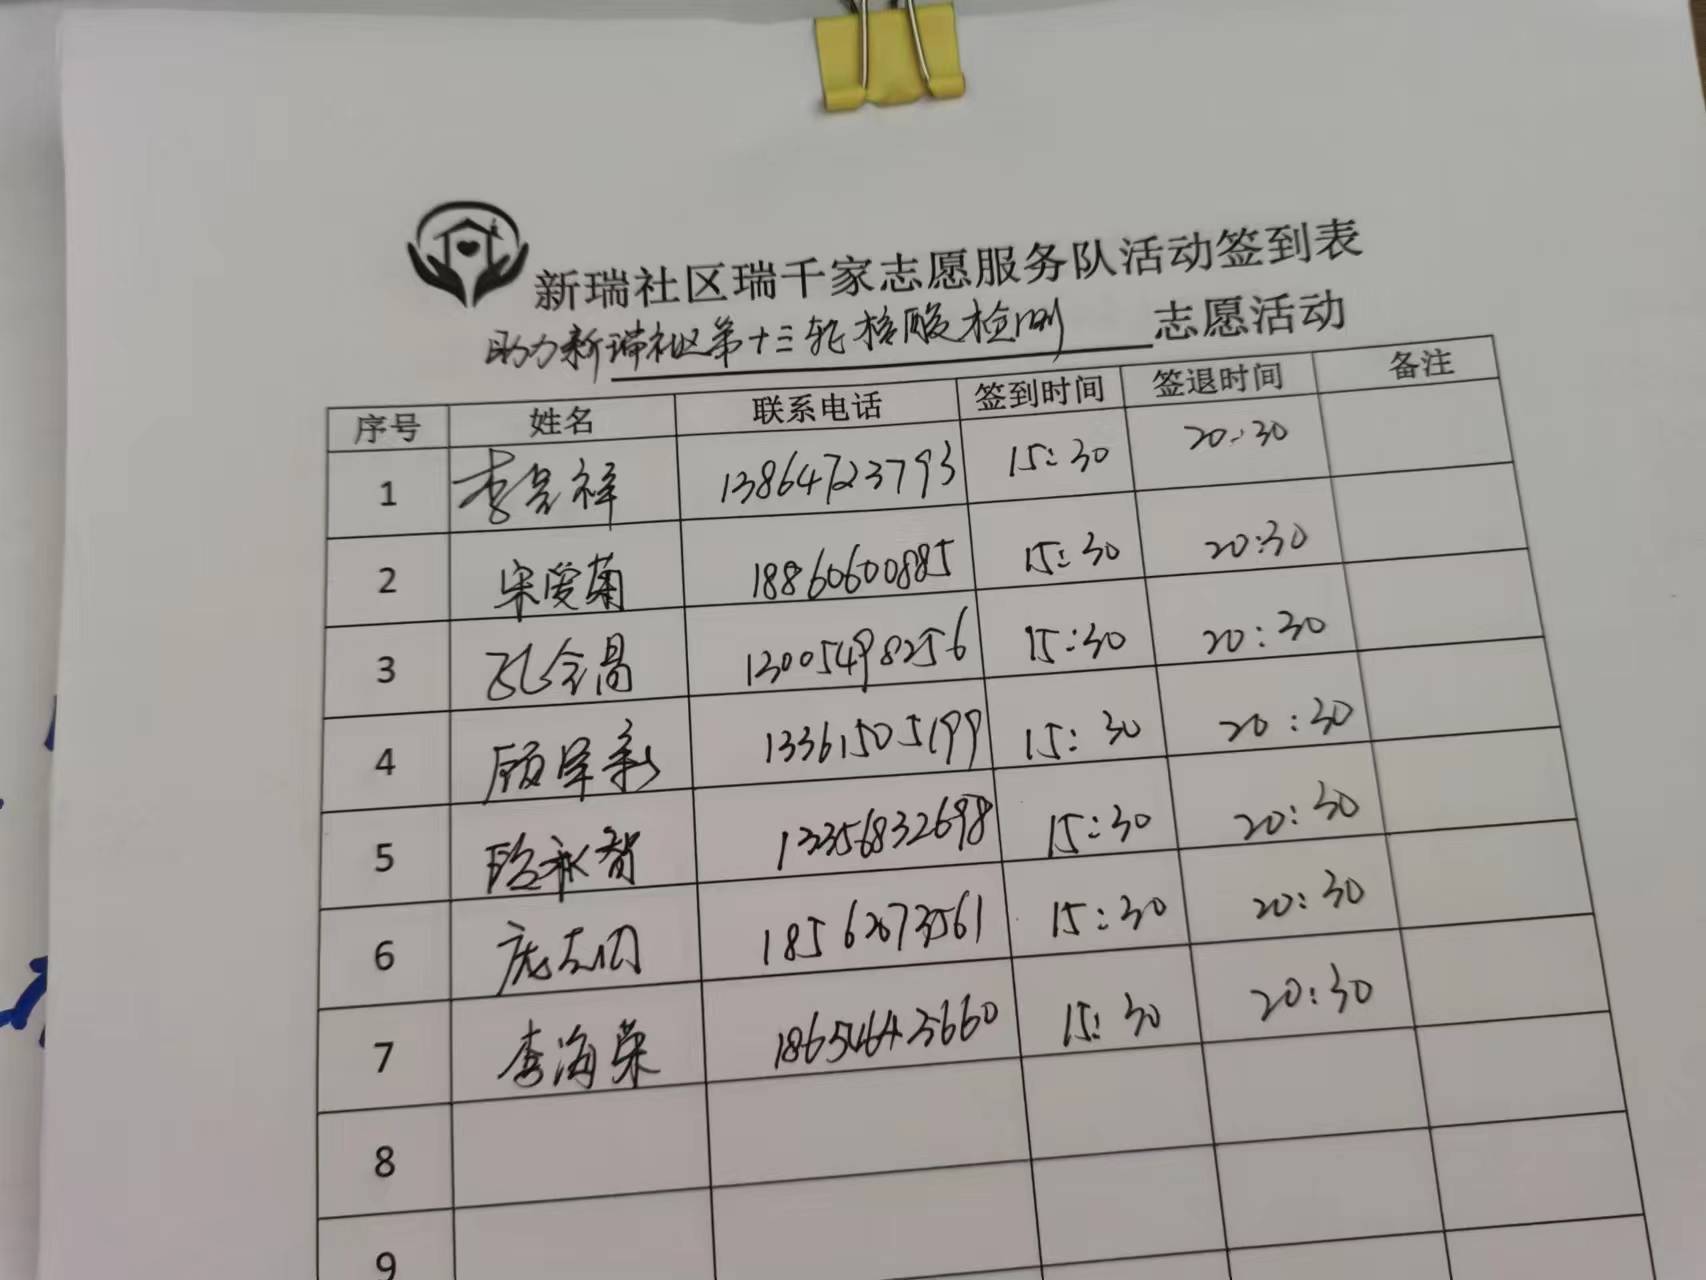 新瑞社区瑞千家志愿服务队活动签到表
助力新瑞社区第十三轮核酸检测 志愿活动
序号 姓名 联系电话 签到时间 签退时间 备注
1 李 祥 13864723793 15:30 20:30
2 宋爱菊 18860600885 15:30 20:30
3 孔令昌 13005498256 15:30 20:30
4 顾 新 13361505199 15:30 20:30
5 永智 13356832698 15:30 20:30
6 庞 18562673561 15:30 20:30
7 李海荣 18654643660 15:30 20:30
8
9